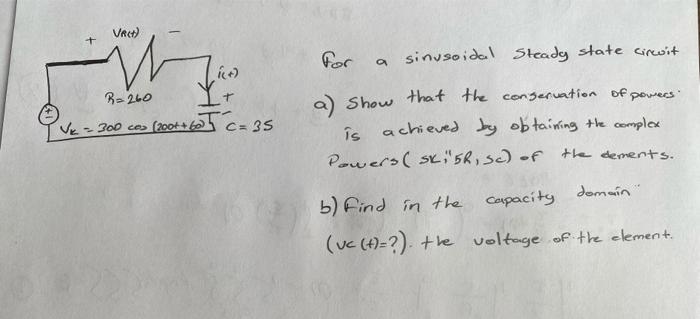 + VR(t) -
i(t)
R=260
+
+
-
Vk = 300 cos (200t+60) C=35
For a sinusoidal Steady state circuit
a) Show that the conservation of powers
is achieved by obtaining the complex
Powers( sk; "SR, sc) of the elements.
b) Find in the capacity domain"
(vc (t)=?). the voltage of the element.